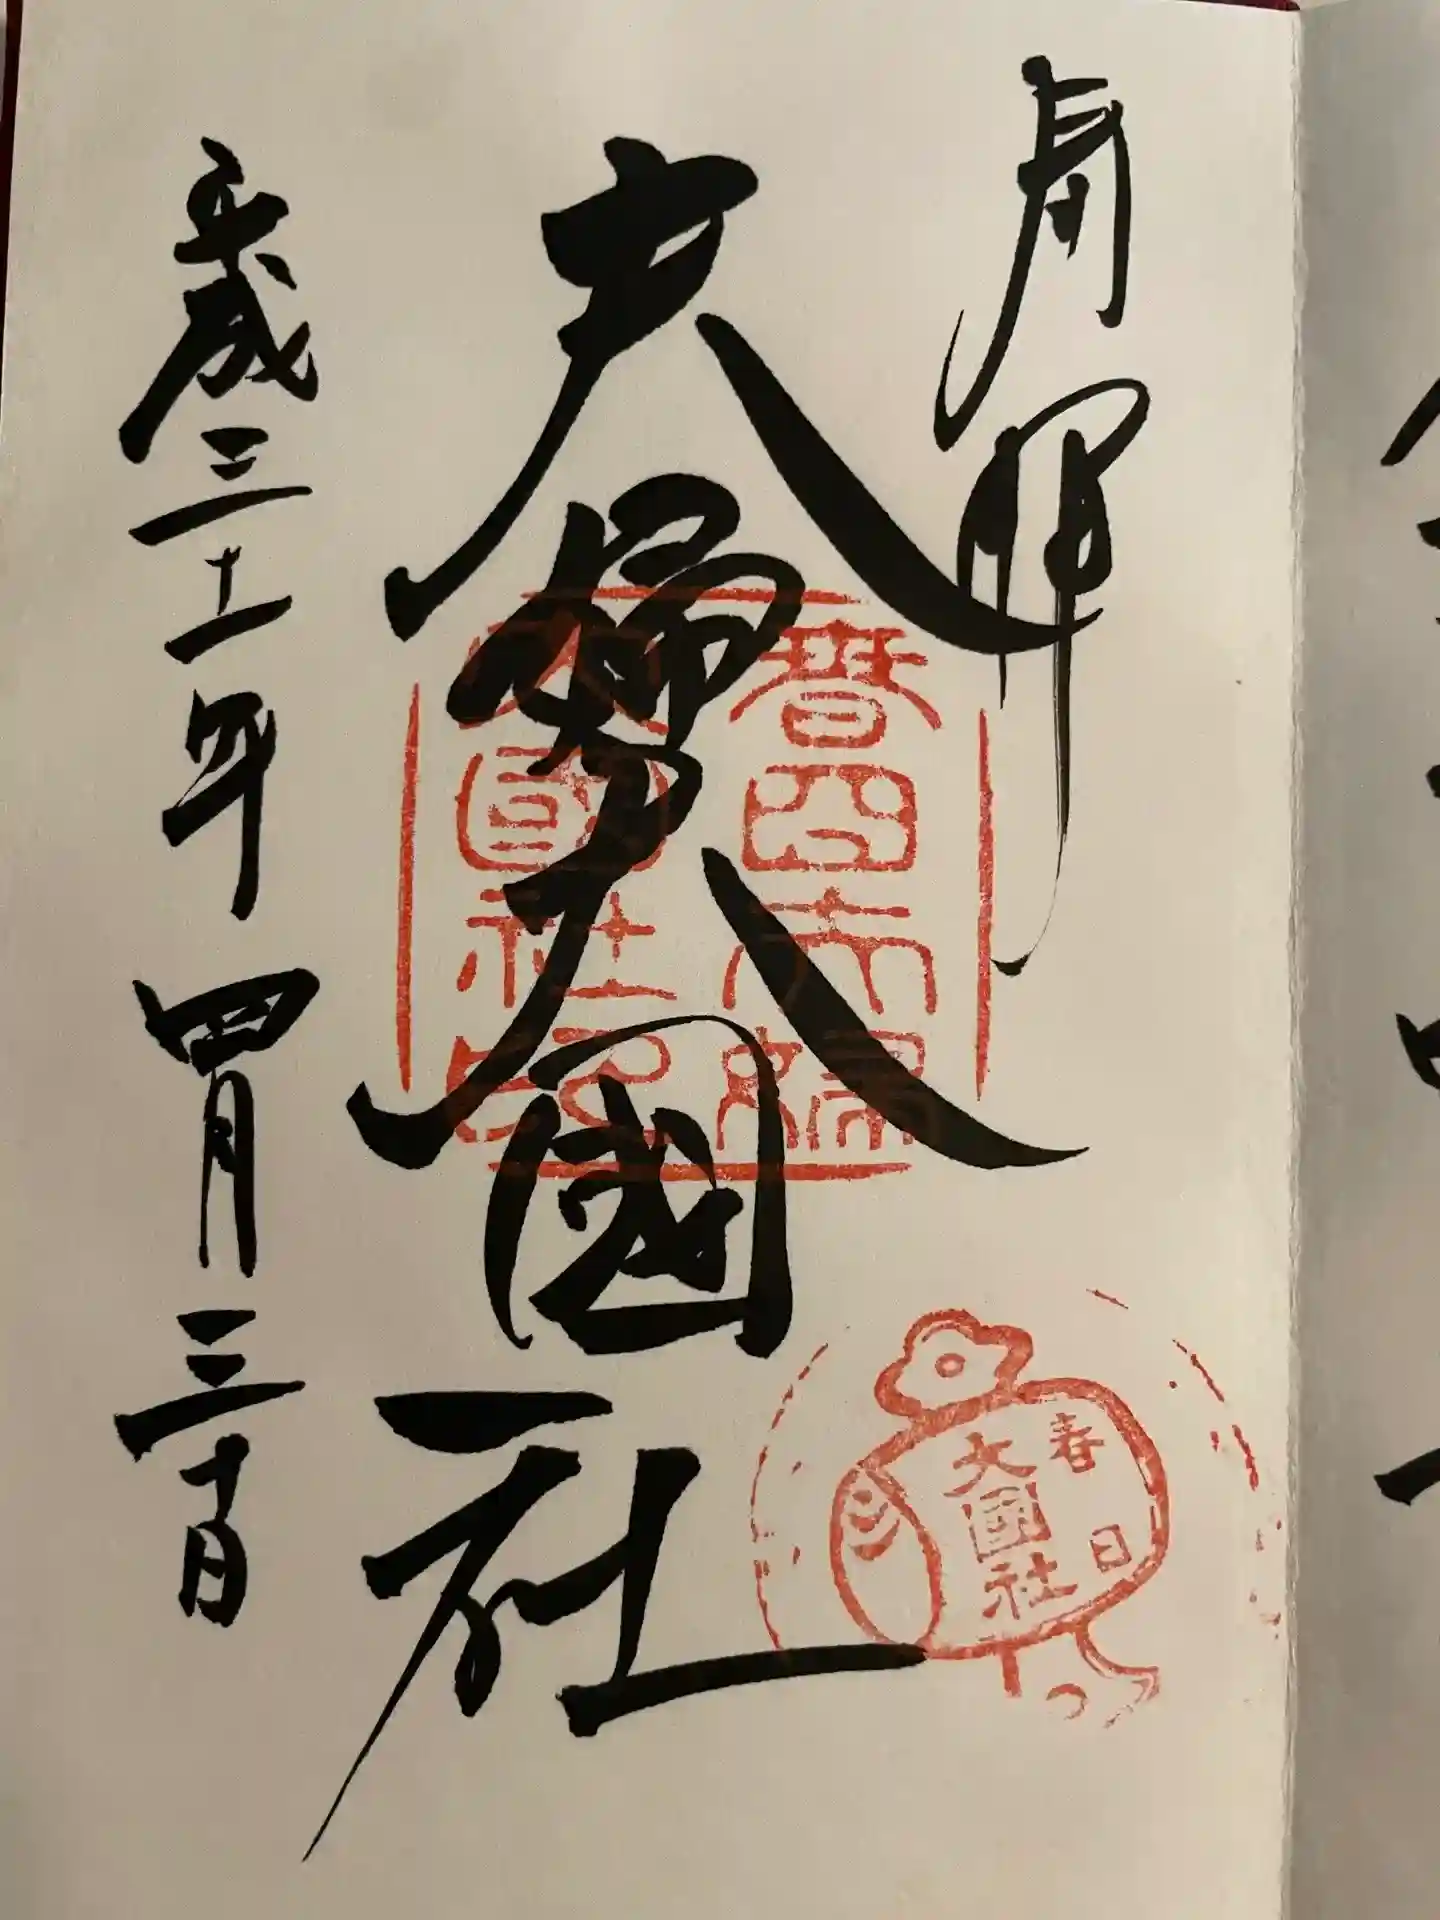 夫婦大國社
平成三十一年四月三十日
春日夫婦
大國社印
春日
大國社